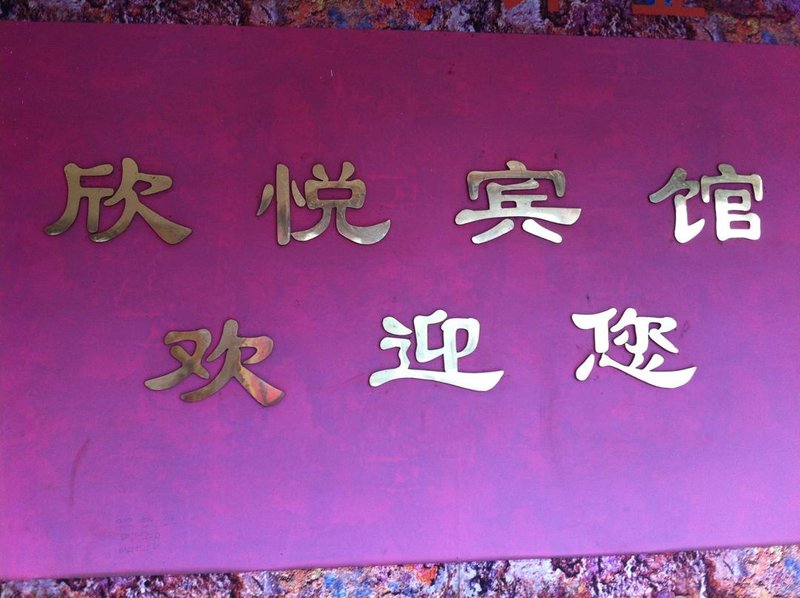 欣悦宾馆
欢迎您